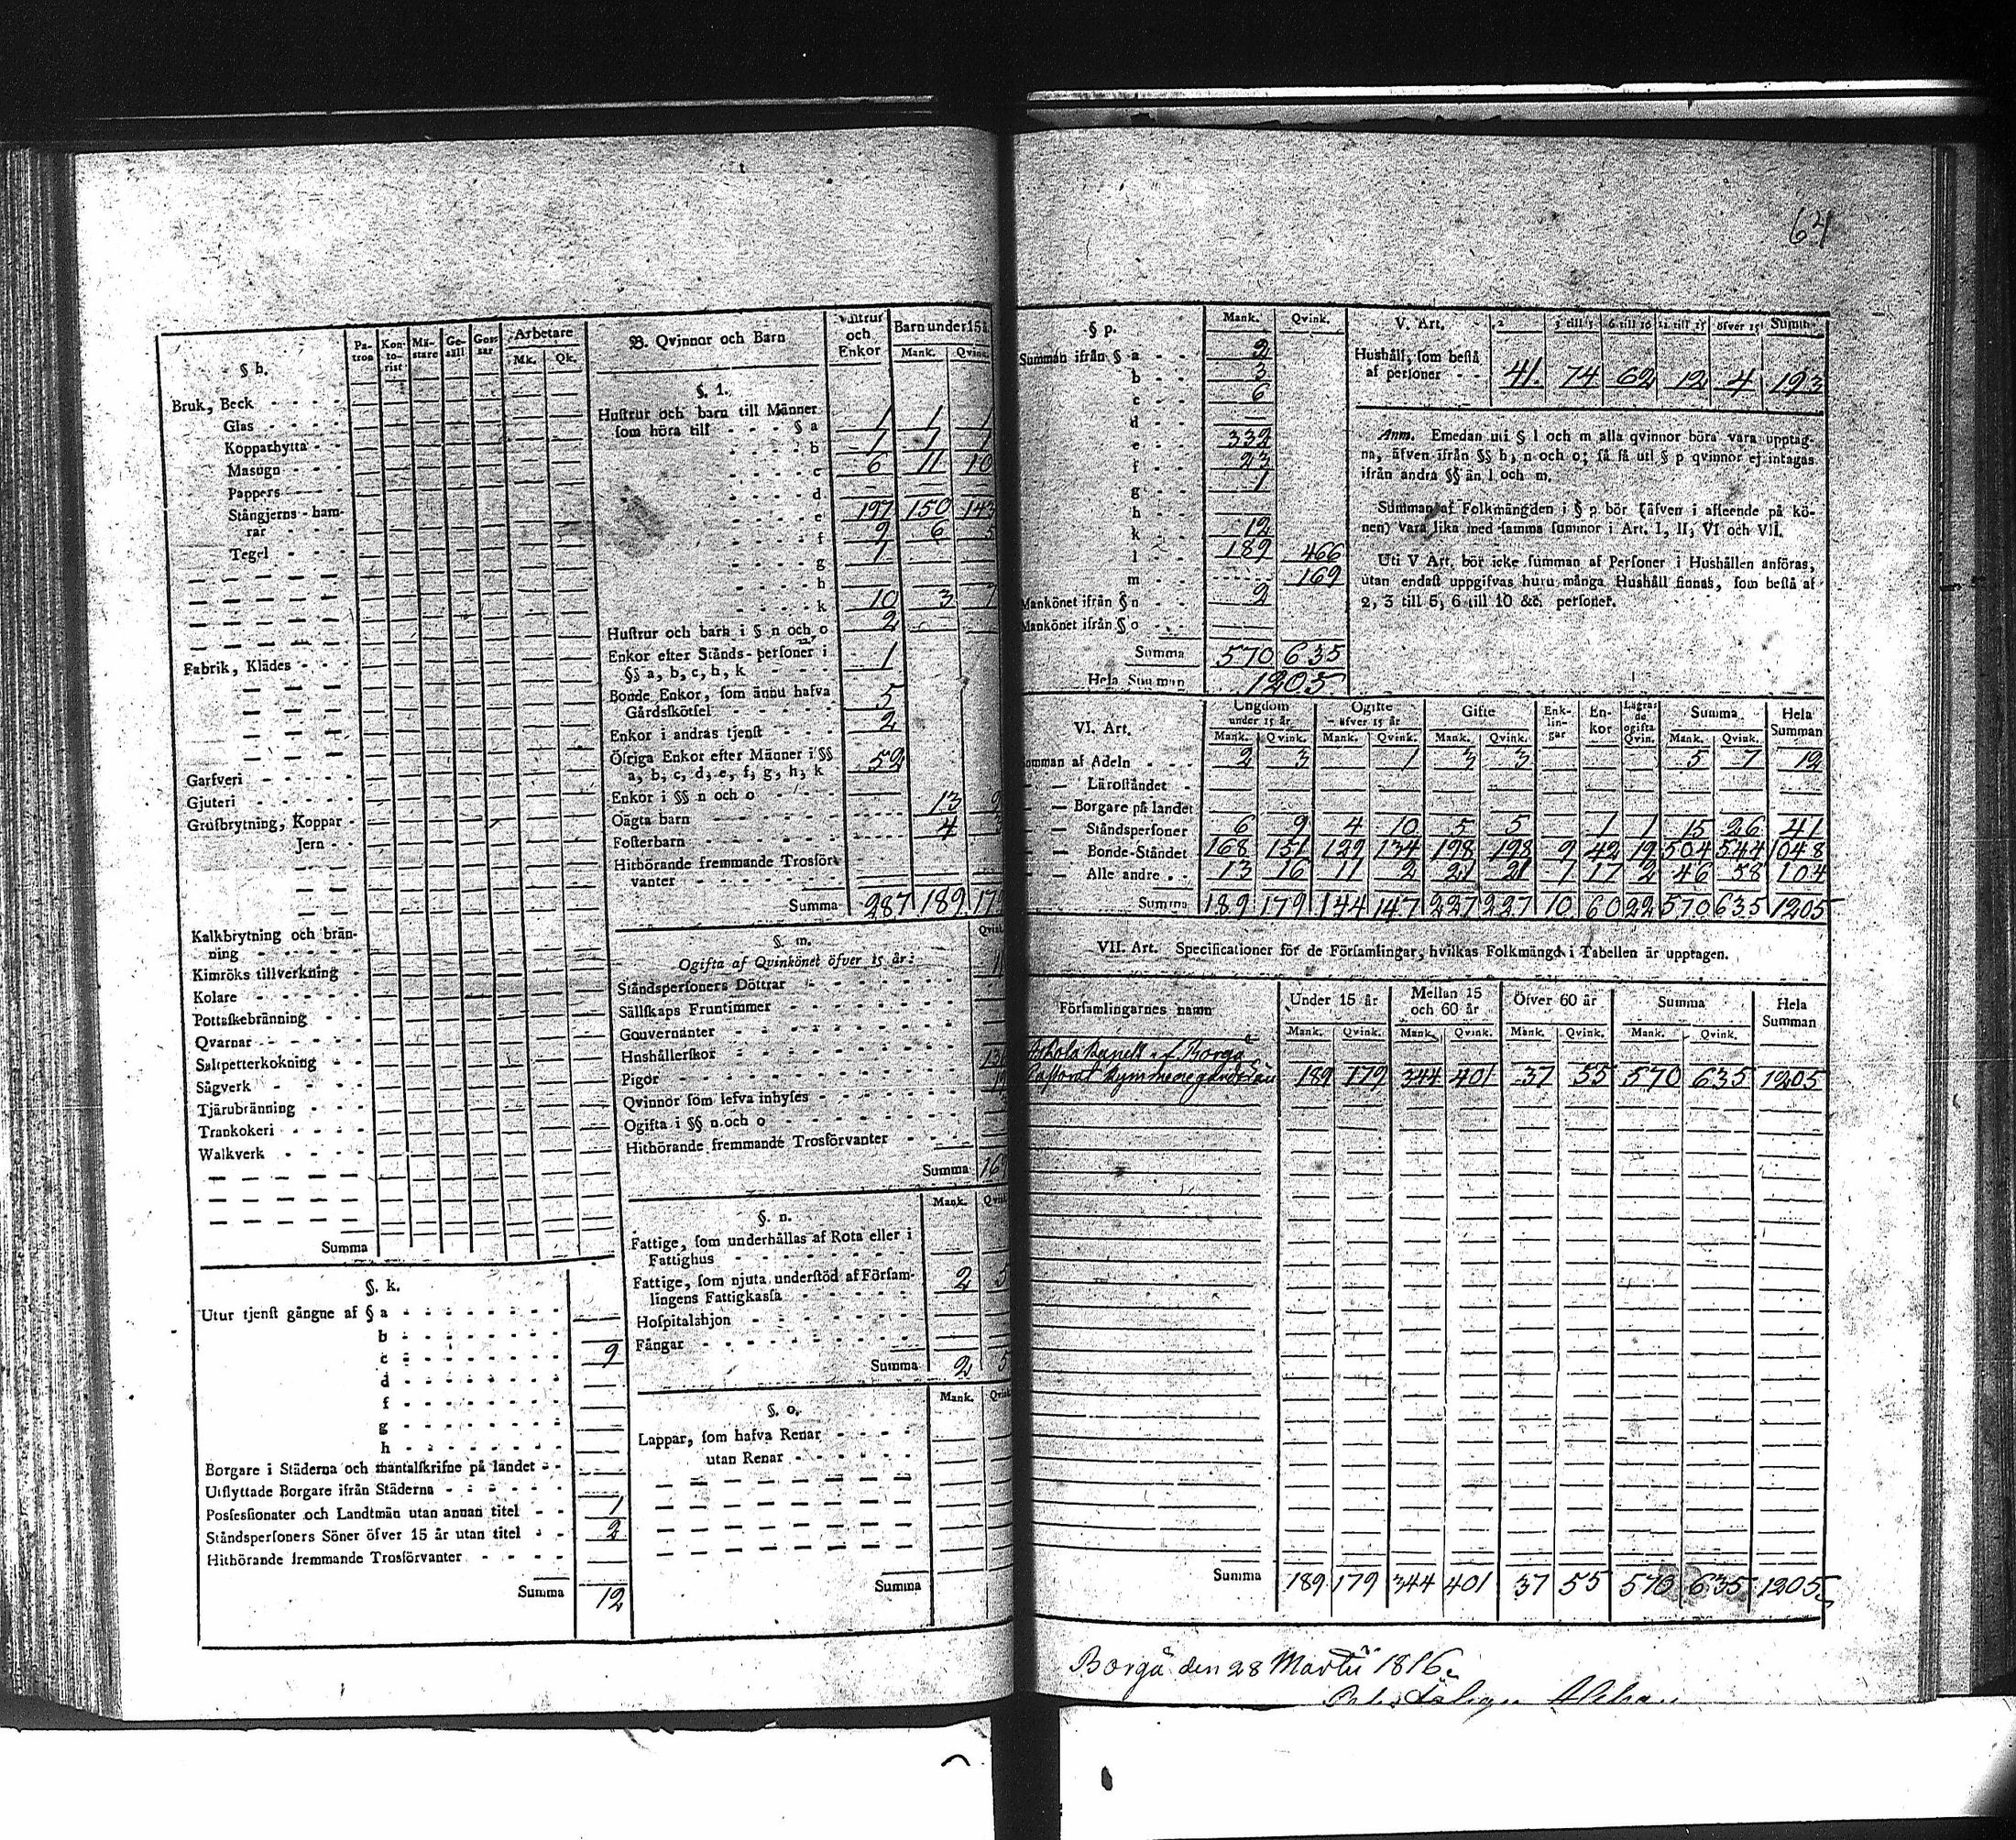 64
§ h.
Pa-
tron
Kon-
to-
rist
Mä-
stare
Ge-
säll
Gos-
sar
Arbetare
Mk. Qk.
Bruk, Beck
Glas
Kopparhytta
Masugn
Pappers
Stångjerns-ham-
rar
Tegel
Fabrik, Klädes
Garfveri
Gjuteri
Grufbrytning, Koppar
Jern
Kalkbrytning och brän-
ning
Kimröks tillverkning
Kolare
Pottaskebränning
Qvarnar
Saltpetterkokning
Sågverk
Tjärubränning
Trankokeri
Walkverk
Summa
§. k.
Utur tjenst gångne af § a
b
c 9
d
f
g
h
Borgare i Städerna och mantalskrifne på landet
Utflyttade Borgare ifrån Städerna
Possessionater och Landtmän utan annan titel 1
Ståndspersoners Söner öfver 15 år utan titel 2
Hithörande fremmande Trosförvanter
Summa 12
B. Qvinnor och Barn
och
Enkor
Barn under 15 å.
Mank. Qvink.
§. 1.
Hustrur och barn till Männer
som höra till § a 1 1 1
b 1 1 1
c 6 11 10
d
e 197 150 143
f 9 6 5
g 1
h
k 10 3 7
Hustrur och barn i § n och o 2
Enkor efter Stånds-personer i
§§ a, b, c, h, k 1
Bonde Enkor, som ännu hafva
Gårdsskötsel 5
Enkor i andras tjenst 2
Öfriga Enkor efter Männer i §§
a, b, c, d, e, f, g, h, k 52
Enkor i §§ n och o
Oägta barn 13 9
Fosterbarn 4 3
Hithörande fremmande Trosför-
vanter
Summa 287 189 17
§. m.
Qvink.
Ogifta af Qvinkönet öfver 15 år:
Ståndspersoners Döttrar
Sällskaps Fruntimmer
Gouvernanter
Hushållerskor
Pigor
Qvinnor som lefva inhyses
Ogifta i §§ n och o
Hithörande fremmande Trosförvanter
Summa 16
§. n.
Mank. Qvink
Fattige, som underhållas af Rota eller i
Fattighus
Fattige, som njuta understöd af Försam-
lingens Fattigkassa 2 5
Hospitalshjon
Fångar
Summa 2 5
§. o.
Mank. Qvink
Lappar, som hafva Renar
utan Renar
Summa
§ p.
Mank. Qvink.
Summan ifrån § a 2
b 3
c 6
d
e 332
f 23
g 1
h
k 12
l 189 466
m 169
Mankönet ifrån § n 2
Mankönet ifrån § o
Summa 570 635
Hela Summan 1205
V. Art. 2 3 till 5 6 till 10 11 till 15 öfver 15 Summa
Hushåll, som bestå
af personer 41 74 62 12 4 193
Anm. Emedan uti § l och m alla qvinnor böra vara upptag-
na, äfven ifrån §§ b, n och o; så få uti § p qvinnor ej intagas
ifrån andra §§ än l och m.
Summan af Folkmängden i § p bör (äfven i afseende på kö-
nen) vara lika med samma summor i Art. I, II, VI och VII.
Uti V Art. bör icke summan af Personer i Hushållen anföras,
utan endast uppgifvas huru många Hushåll finnas, som bestå af
2, 3 till 5, 6 till 10 &c. personer.
VI. Art.
Ungdom
under 15 år
Ogifte
öfver 15 år
Gifte
Enk-
lin-
gar
En-
kor
Lägras
de
ogifta
Qvin.
Summa
Hela
Summan
Mank. Qvink. Mank. Qvink. Mank. Qvink. Mank. Qvink.
Summan af Adeln 2 3 1 3 3 5 7 12
Läroståndet
Borgare på landet
Ståndspersoner 6 9 4 10 5 5 1 1 15 26 41
Bonde-Ståndet 168 151 129 134 198 198 9 42 19 504 544 1048
Alle andre 13 16 11 2 21 21 1 17 2 46 58 104
Summa 189 179 144 147 227 227 10 60 22 570 635 1205
VII. Art. Specificationer för de Församlingar, hvilkas Folkmängd i Tabellen är upptagen.
Församlingarnes namn
Under 15 år
Mellan 15
och 60 år
Öfver 60 år
Summa
Hela
Summan
Mank. Qvink. Mank. Qvink. Mank. Qvink. Mank. Qvink.
Askola Kapell af Borgå
Pastorat Kymmenegårds Län 189 179 344 401 37 55 570 635 1205
Summa 189 179 344 401 37 55 570 635 1205
Borgå den 28 Martii 1816.